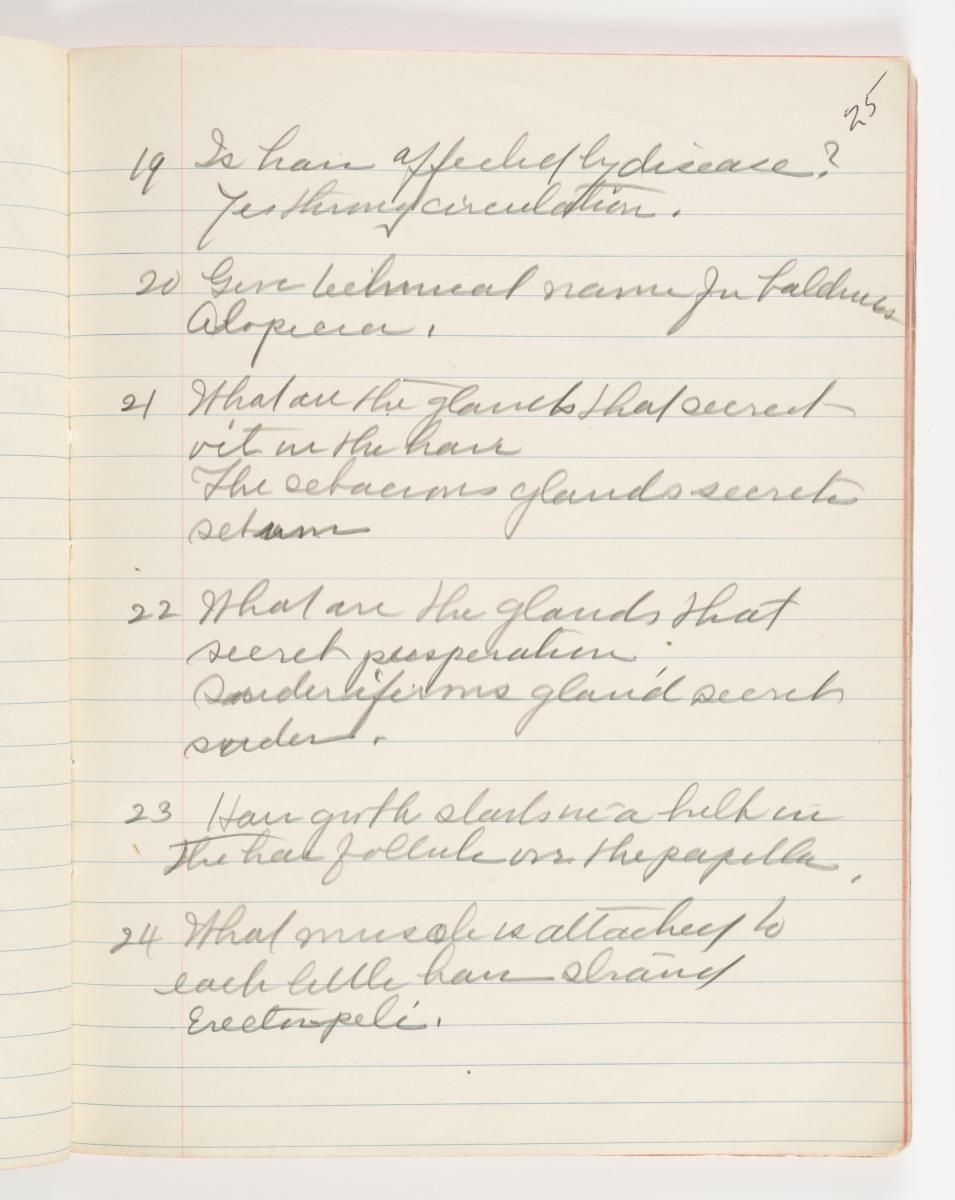 25
19 Is hair affected by disease?
Yes through circulation.
20 Give technical name for baldness
Alopecia.
21 What are the glands that secret
oil in the hair
The sebacious glands secrets
sebum
22 What are the glands that
secret persperation
Souderiferous gland secrets
souder.
23 Hair groth starts in a bulb in
the hair follicle over the papilla.
24 What muscle is attached to
each little hair strand
Erector peli.